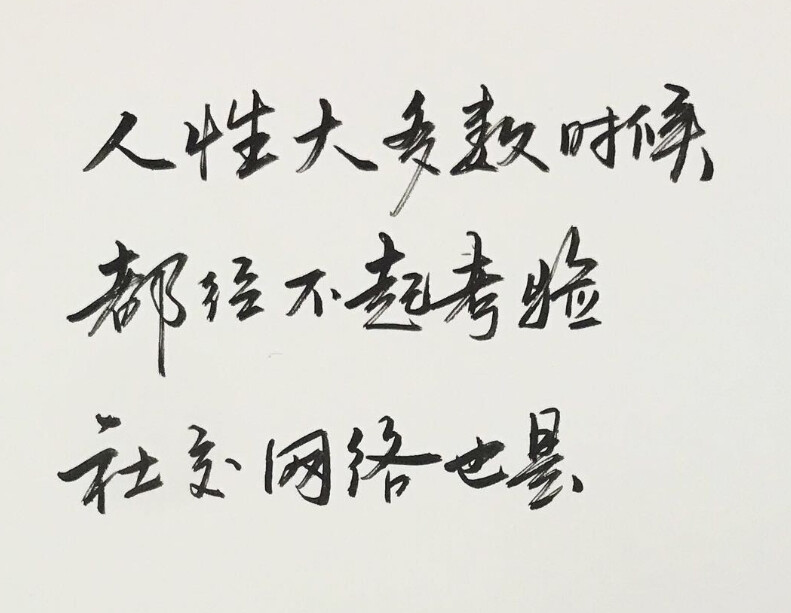 人性大多数时候
都经不起考验
社交网络也是